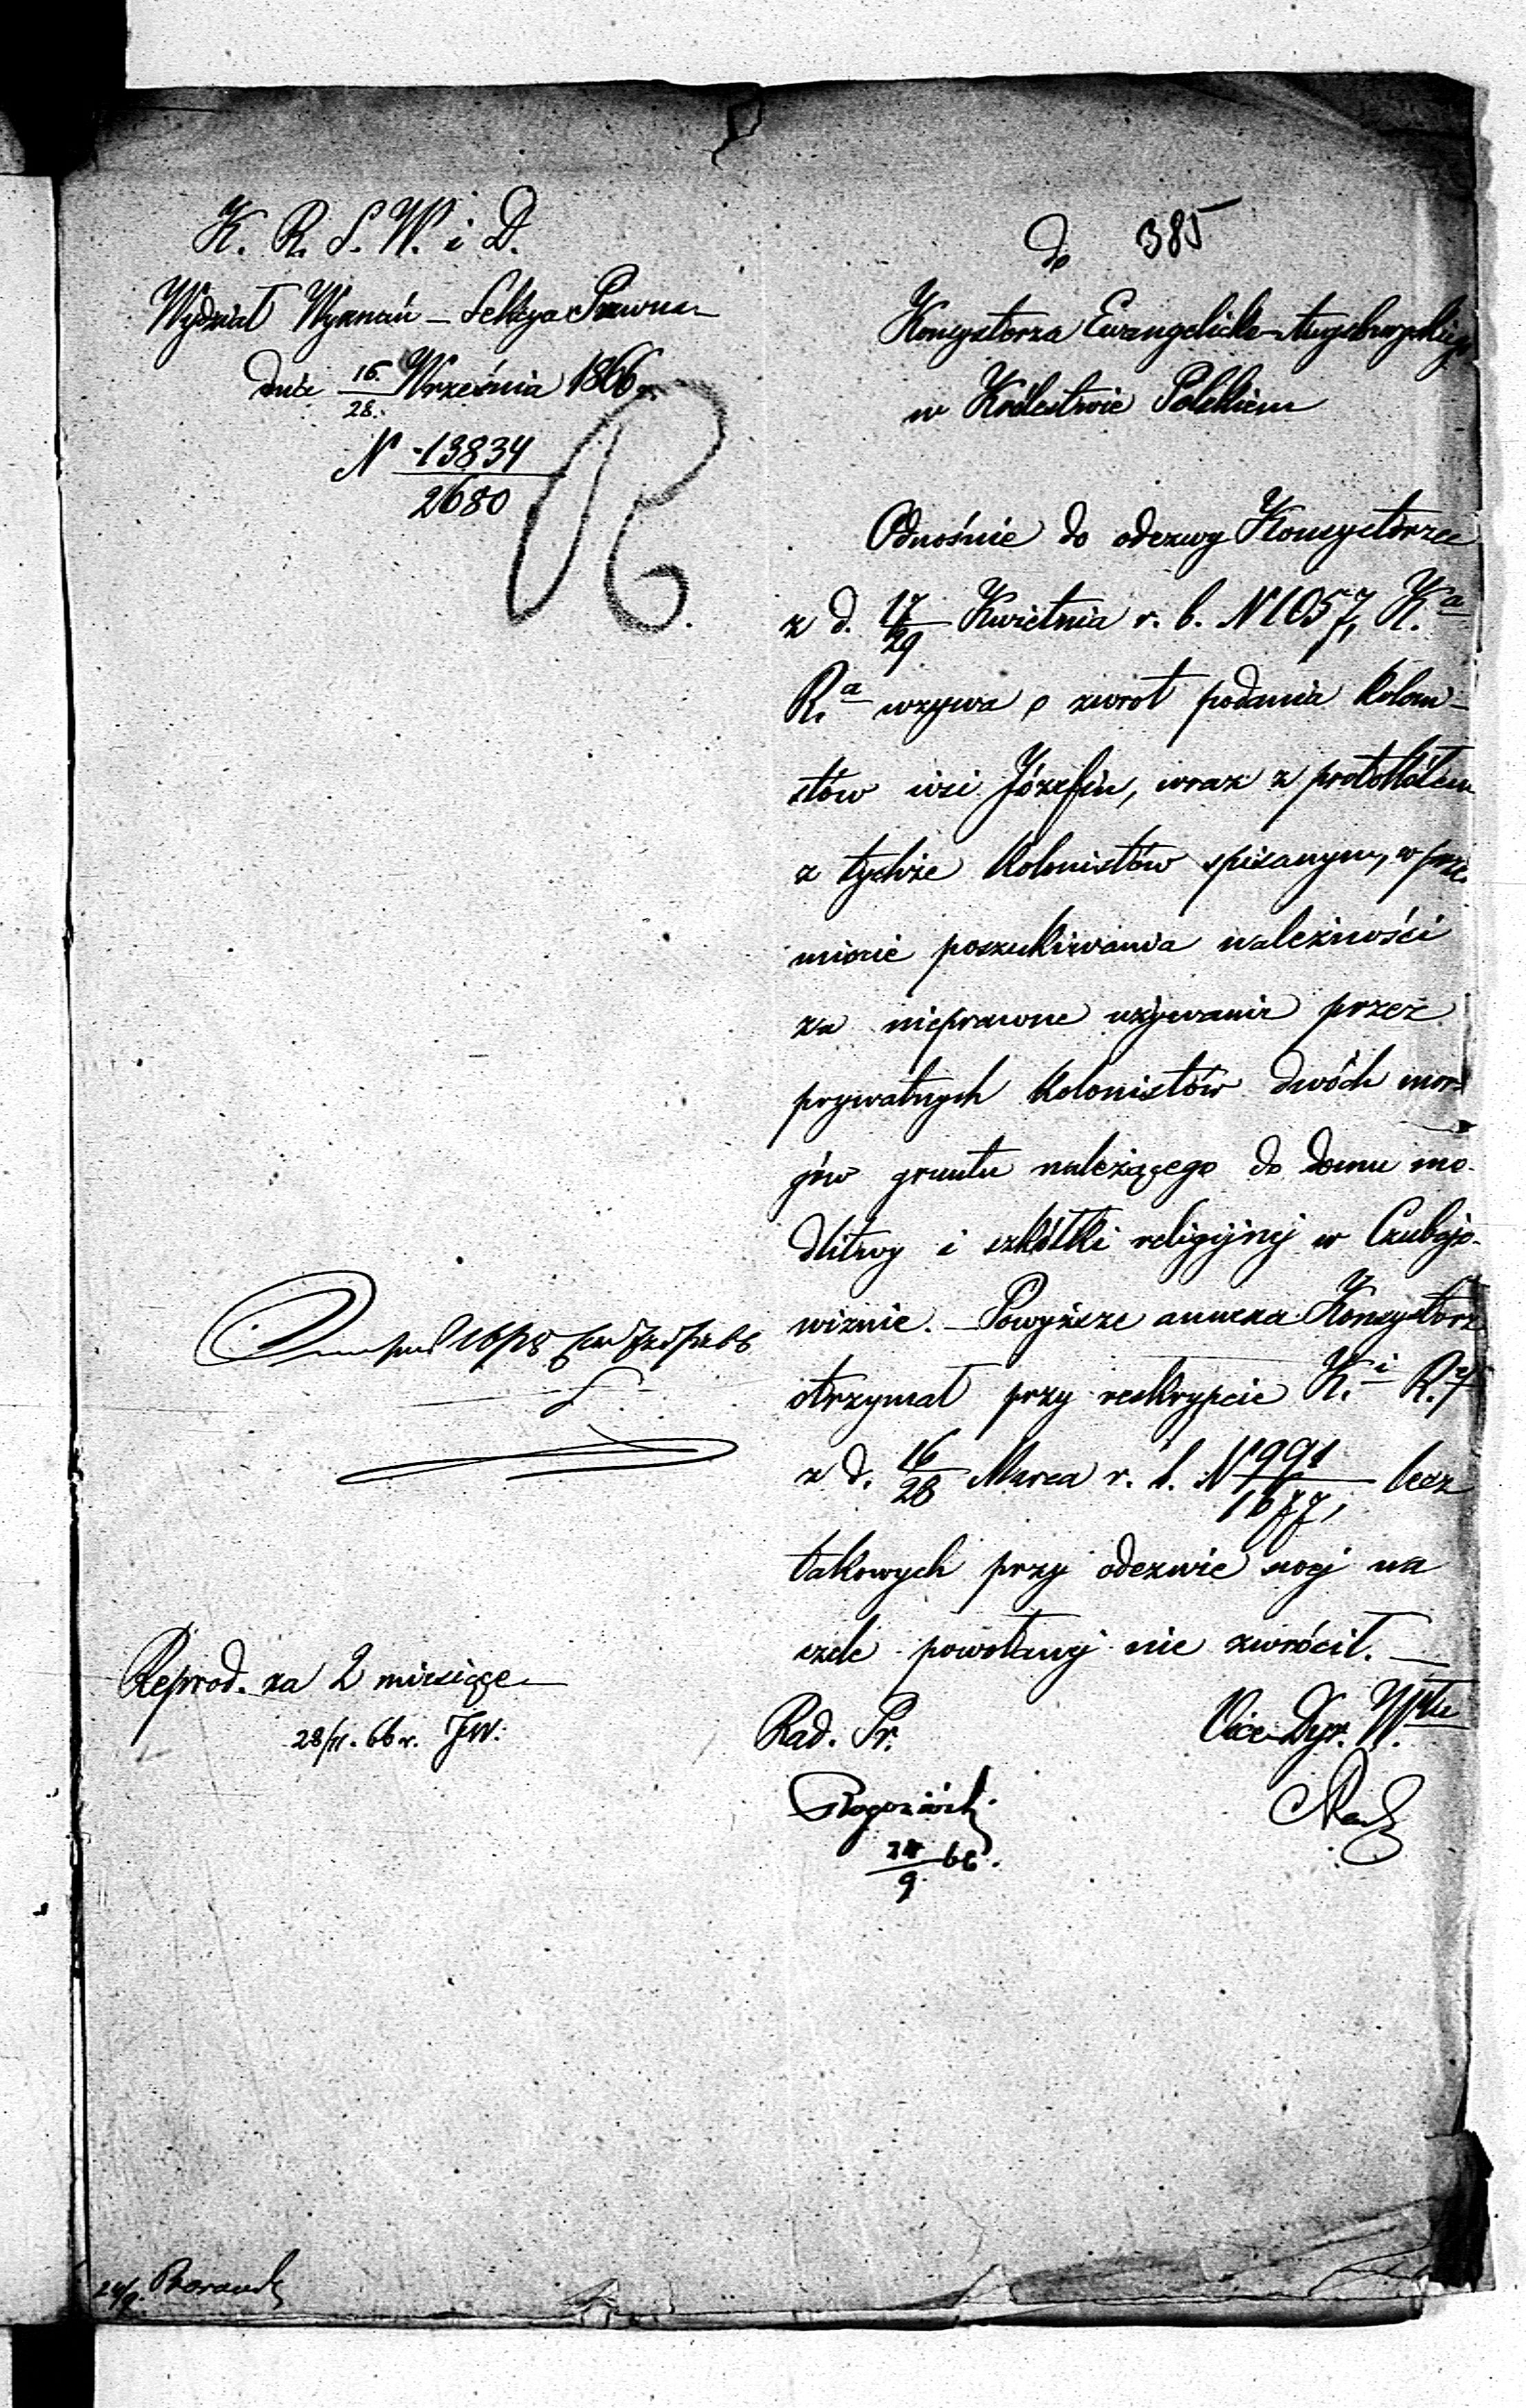 K. R. S. W. i D.
Wydział Wyznań – Sekcya Prawna
dnia 16/28 Września 1866 r.
N 13834/2680
R.
385
Do
Konsystorza Ewangelicko-Augsburskiego
w Królestwie Polskiem
Odnośnie do odezwy Konsystorza
z d. 17/29 Kwietnia r. b. N 1057, K.a
R.a wzywa o zwrot podania koloni-
stów wsi Józefin, wraz z protokółem
z tychże kolonistów spisanym, w prze-
miocie poszukiwania należności
za nieprawne używanie przez
prywatnych kolonistów dwóch mor-
gów gruntu należącego do domu mo-
dlitwy i szkółki religijnej w Czubajo-
wiznie. – Powyższe annexa Konsystorz
otrzymał przy reskrypcie K.i R.y
z d. 16/28 Marca r. b. N 991/1677, lecz
takowych przy odezwie swej na
czele powołanej nie zwrócił. –
Reprod. za 2 miesiące
28/11. 66 r. JW.
Rad. Pr.
Vice-Dyr. W.łu
Rogoziński
24/9 66.
24/9.